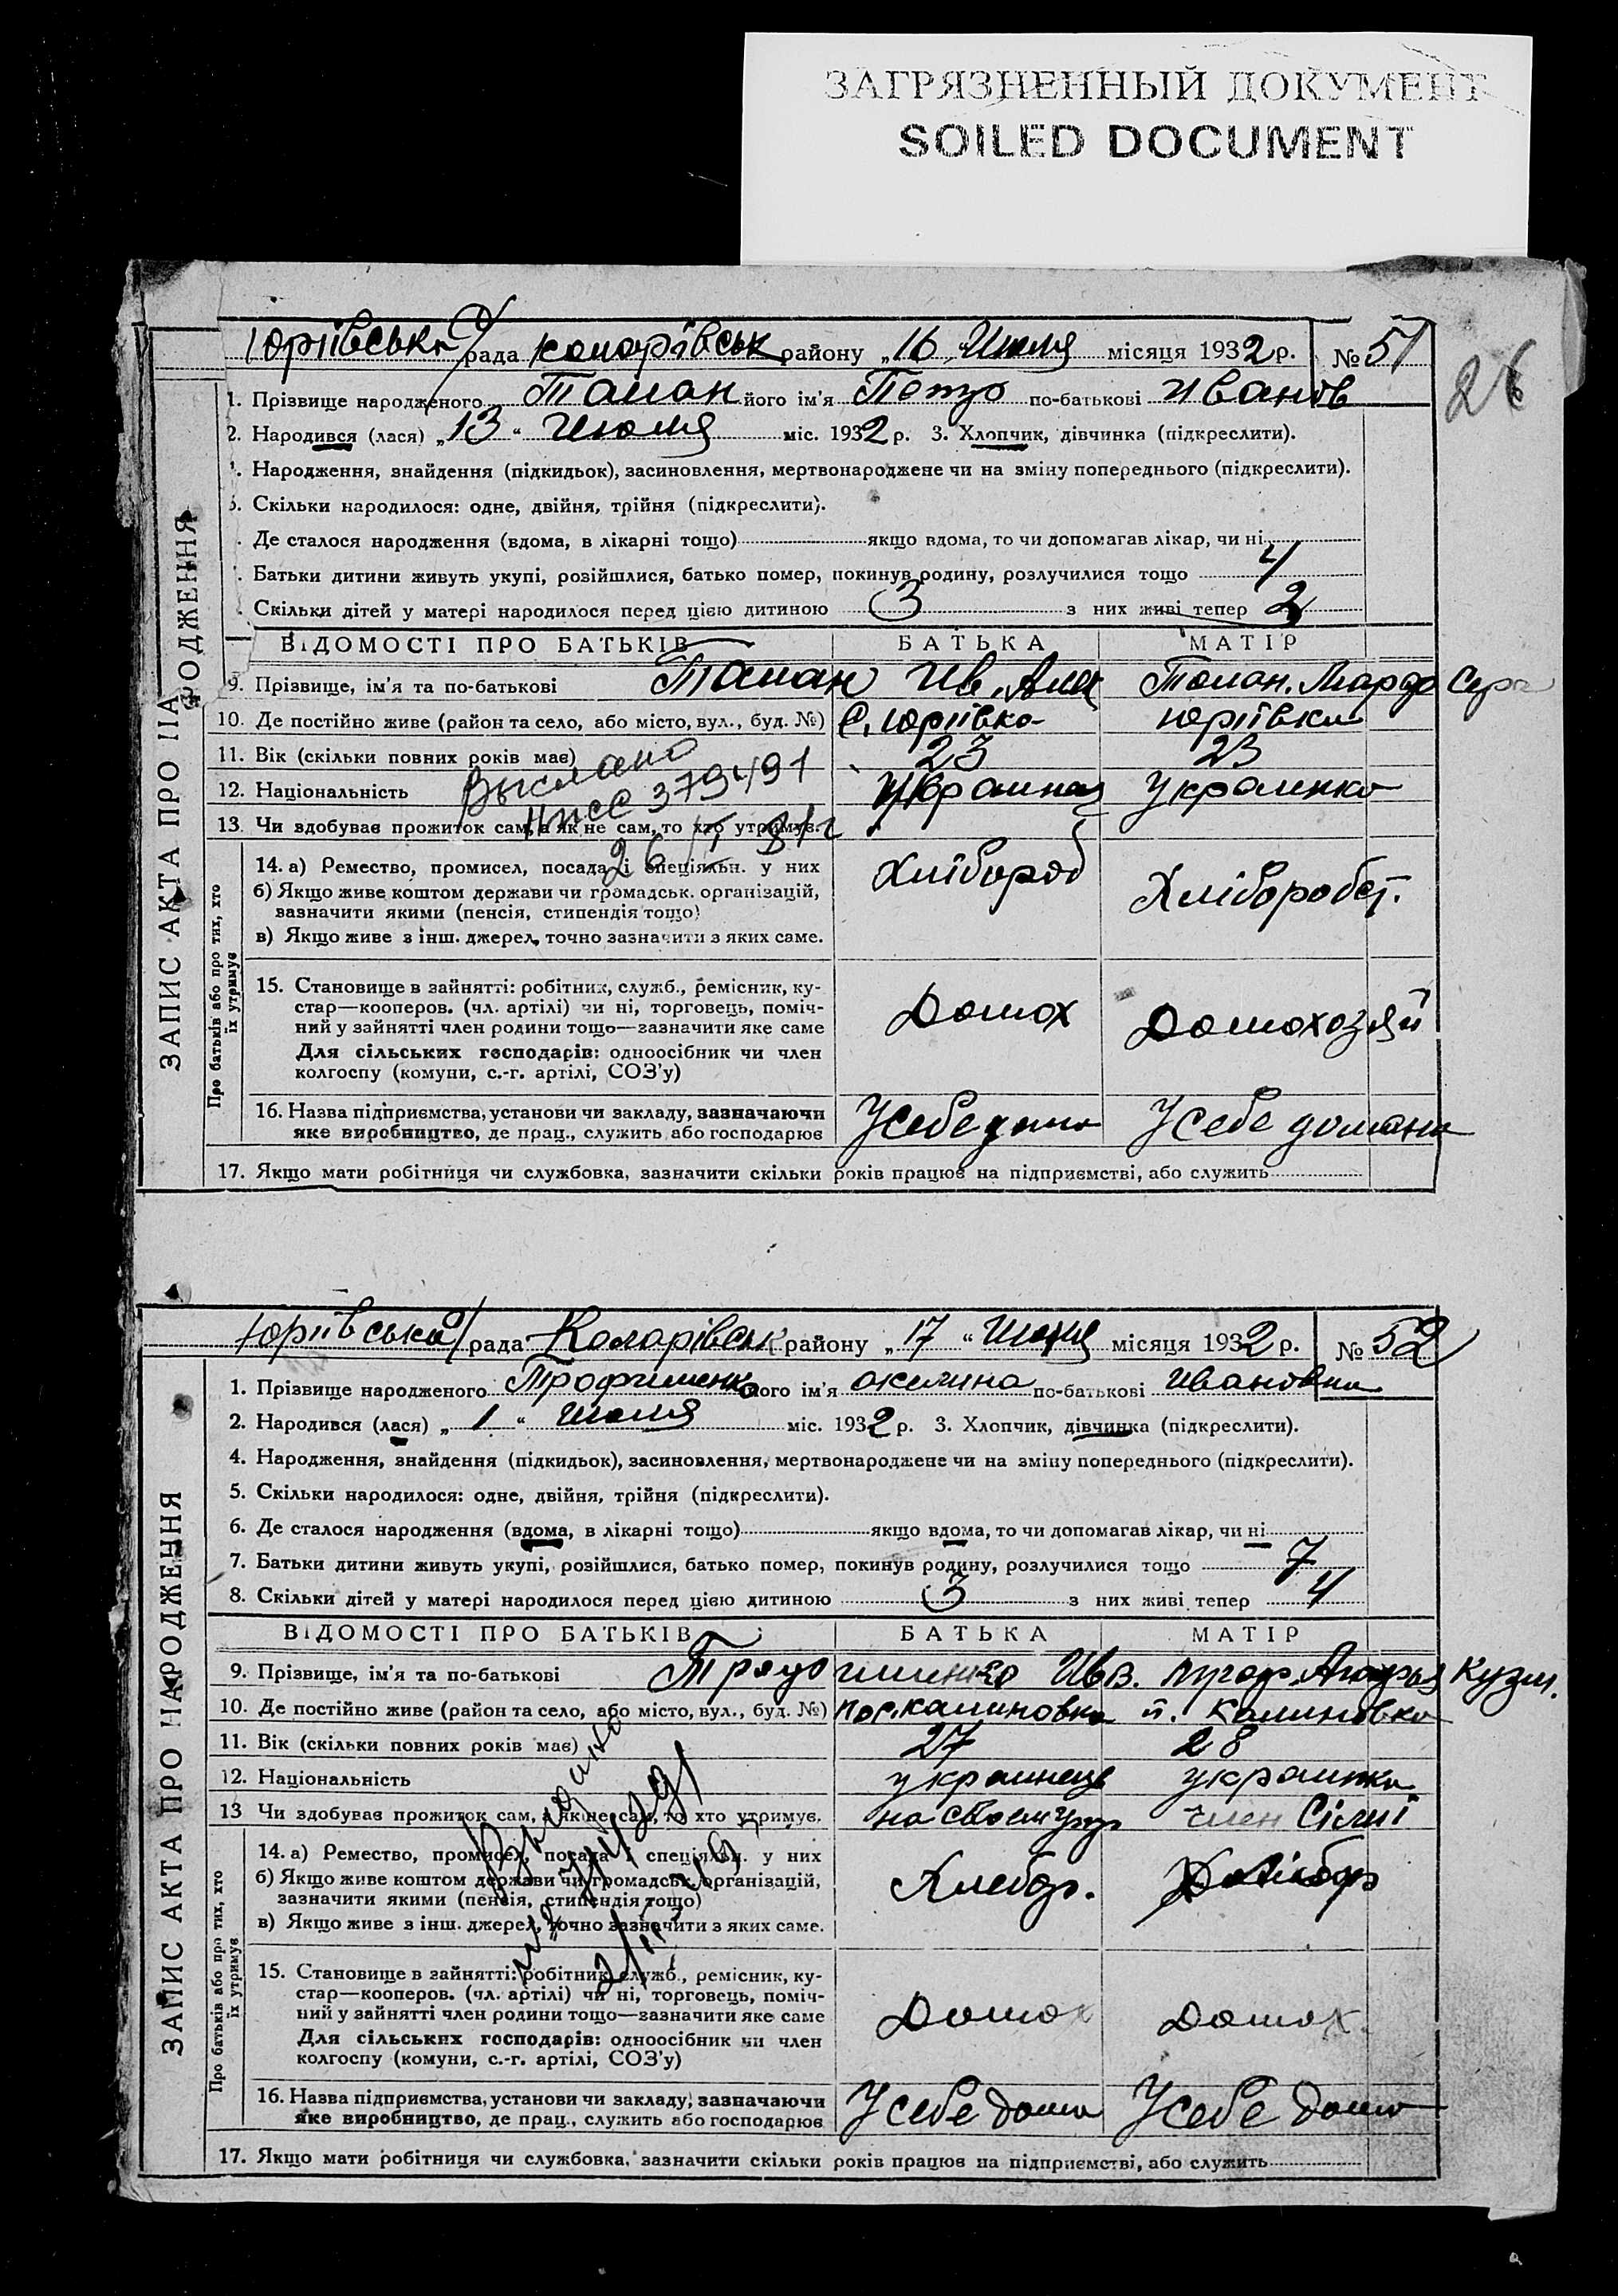 ЗАГРЯЗНЕННЫЙ ДОКУМЕНТ
SOILED DOCUMENT
26
ЗАПИС АКТА ПРО НАРОДЖЕННЯ
Юріївська рада району „16“ Июля місяця 1932 р. № 51
1. Прізвище народженого його ім'я Петро по-батькові Иванов
2. Народився (лася) „13“ Июля міс. 1932 р. 3. Хлопчик, дівчинка (підкреслити).
. Народження, знайдення (підкидьок), засиновлення, мертвонароджене чи на зміну попереднього (підкреслити).
5. Скільки народилося: одне, двійня, трійня (підкреслити).
. Де сталося народження (вдома, в лікарні тощо) якщо вдома, то чи допомагав лікар, чи ні
. Батьки дитини живуть укупі, розійшлися, батько помер, покинув родину, розлучилися тощо 4
. Скільки дітей у матері народилося перед цією дитиною 3 з них живі тепер 2
ВІДОМОСТІ ПРО БАТЬКІВ БАТЬКА МАТІР
9. Прізвище, ім'я та по-батькові Ив.
10. Де постійно живе (район та село, або місто, вул., буд. №) с. Юріївка Юріївка
11. Вік (скільки повних років має) 23 23
12. Національність Украинка
13. Чи здобуває прожиток сам, а як не сам, то хто утримує.
Про батьків або про тих, хто їх утримує
14. а) Ремество, промисел, посада і спеціяльн. у них Хлібороб Хлібороб
б) Якщо живе коштом держави чи громадськ. організацій,
зазначити якими (пенсія, стипендія тощо)
в) Якщо живе з інш. джерел, точно зазначити з яких саме.
15. Становище в зайнятті: робітник, служб., ремісник, ку-
стар—кооперов. (чл. артілі) чи ні, торговець, поміч-
ний у зайнятті член родини тощо—зазначити яке саме
Для сільських господарів: одноосібник чи член
колгоспу (комуни, с.-г. артілі, СОЗ'у)
Домох Домохозяй
16. Назва підприємства, установи чи закладу, зазначаючи
яке виробництво, де прац., служить або господарює
У себе дома У себе дома
17. Якщо мати робітниця чи службовка, зазначити скільки років працює на підприємстві, або служить
Выслано
379491
ЗАПИС АКТА ПРО НАРОДЖЕННЯ
Юріївська рада Коларівськ району „17“ Июля місяця 1932 р. № 52
1. Прізвище народженого Трофименко його ім'я Акилина по-батькові Ивановна
2. Народився (лася) „1“ Июля міс. 1932 р. 3. Хлопчик, дівчинка (підкреслити).
4. Народження, знайдення (підкидьок), засиновлення, мертвонароджене чи на зміну попереднього (підкреслити).
5. Скільки народилося: одне, двійня, трійня (підкреслити).
6. Де сталося народження (вдома, в лікарні тощо) якщо вдома, то чи допомагав лікар, чи ні
7. Батьки дитини живуть укупі, розійшлися, батько помер, покинув родину, розлучилися тощо 7
8. Скільки дітей у матері народилося перед цією дитиною 3 з них живі тепер 4
ВІДОМОСТІ ПРО БАТЬКІВ БАТЬКА МАТІР
9. Прізвище, ім'я та по-батькові Трофименко Ив. Кузм.
10. Де постійно живе (район та село, або місто, вул., буд. №) пос. Калиновка п. Калиновка
11. Вік (скільки повних років має) 27 28
12. Національність украинец украинка
13 Чи здобуває прожиток сам, а як не сам, то хто утримує. на своем член Сімї
Про батьків або про тих, хто їх утримує
14. а) Ремество, промисел, посада і спеціяльн. у них Хлебор.
б) Якщо живе коштом держави чи громадськ. організацій,
зазначити якими (пенсія, стипендія тощо)
в) Якщо живе з інш. джерел, точно зазначити з яких саме.
15. Становище в зайнятті: робітник, служб., ремісник, ку-
стар—кооперов. (чл. артілі) чи ні, торговець, поміч-
ний у зайнятті член родини тощо—зазначити яке саме
Для сільських господарів: одноосібник чи член
колгоспу (комуни, с.-г. артілі, СОЗ'у)
Домох Домох.
16. Назва підприємства, установи чи закладу, зазначаючи
яке виробництво, де прац., служить або господарює
У себе дома У себе дома
17. Якщо мати робітниця чи службовка, зазначити скільки років працює на підприємстві, або служить